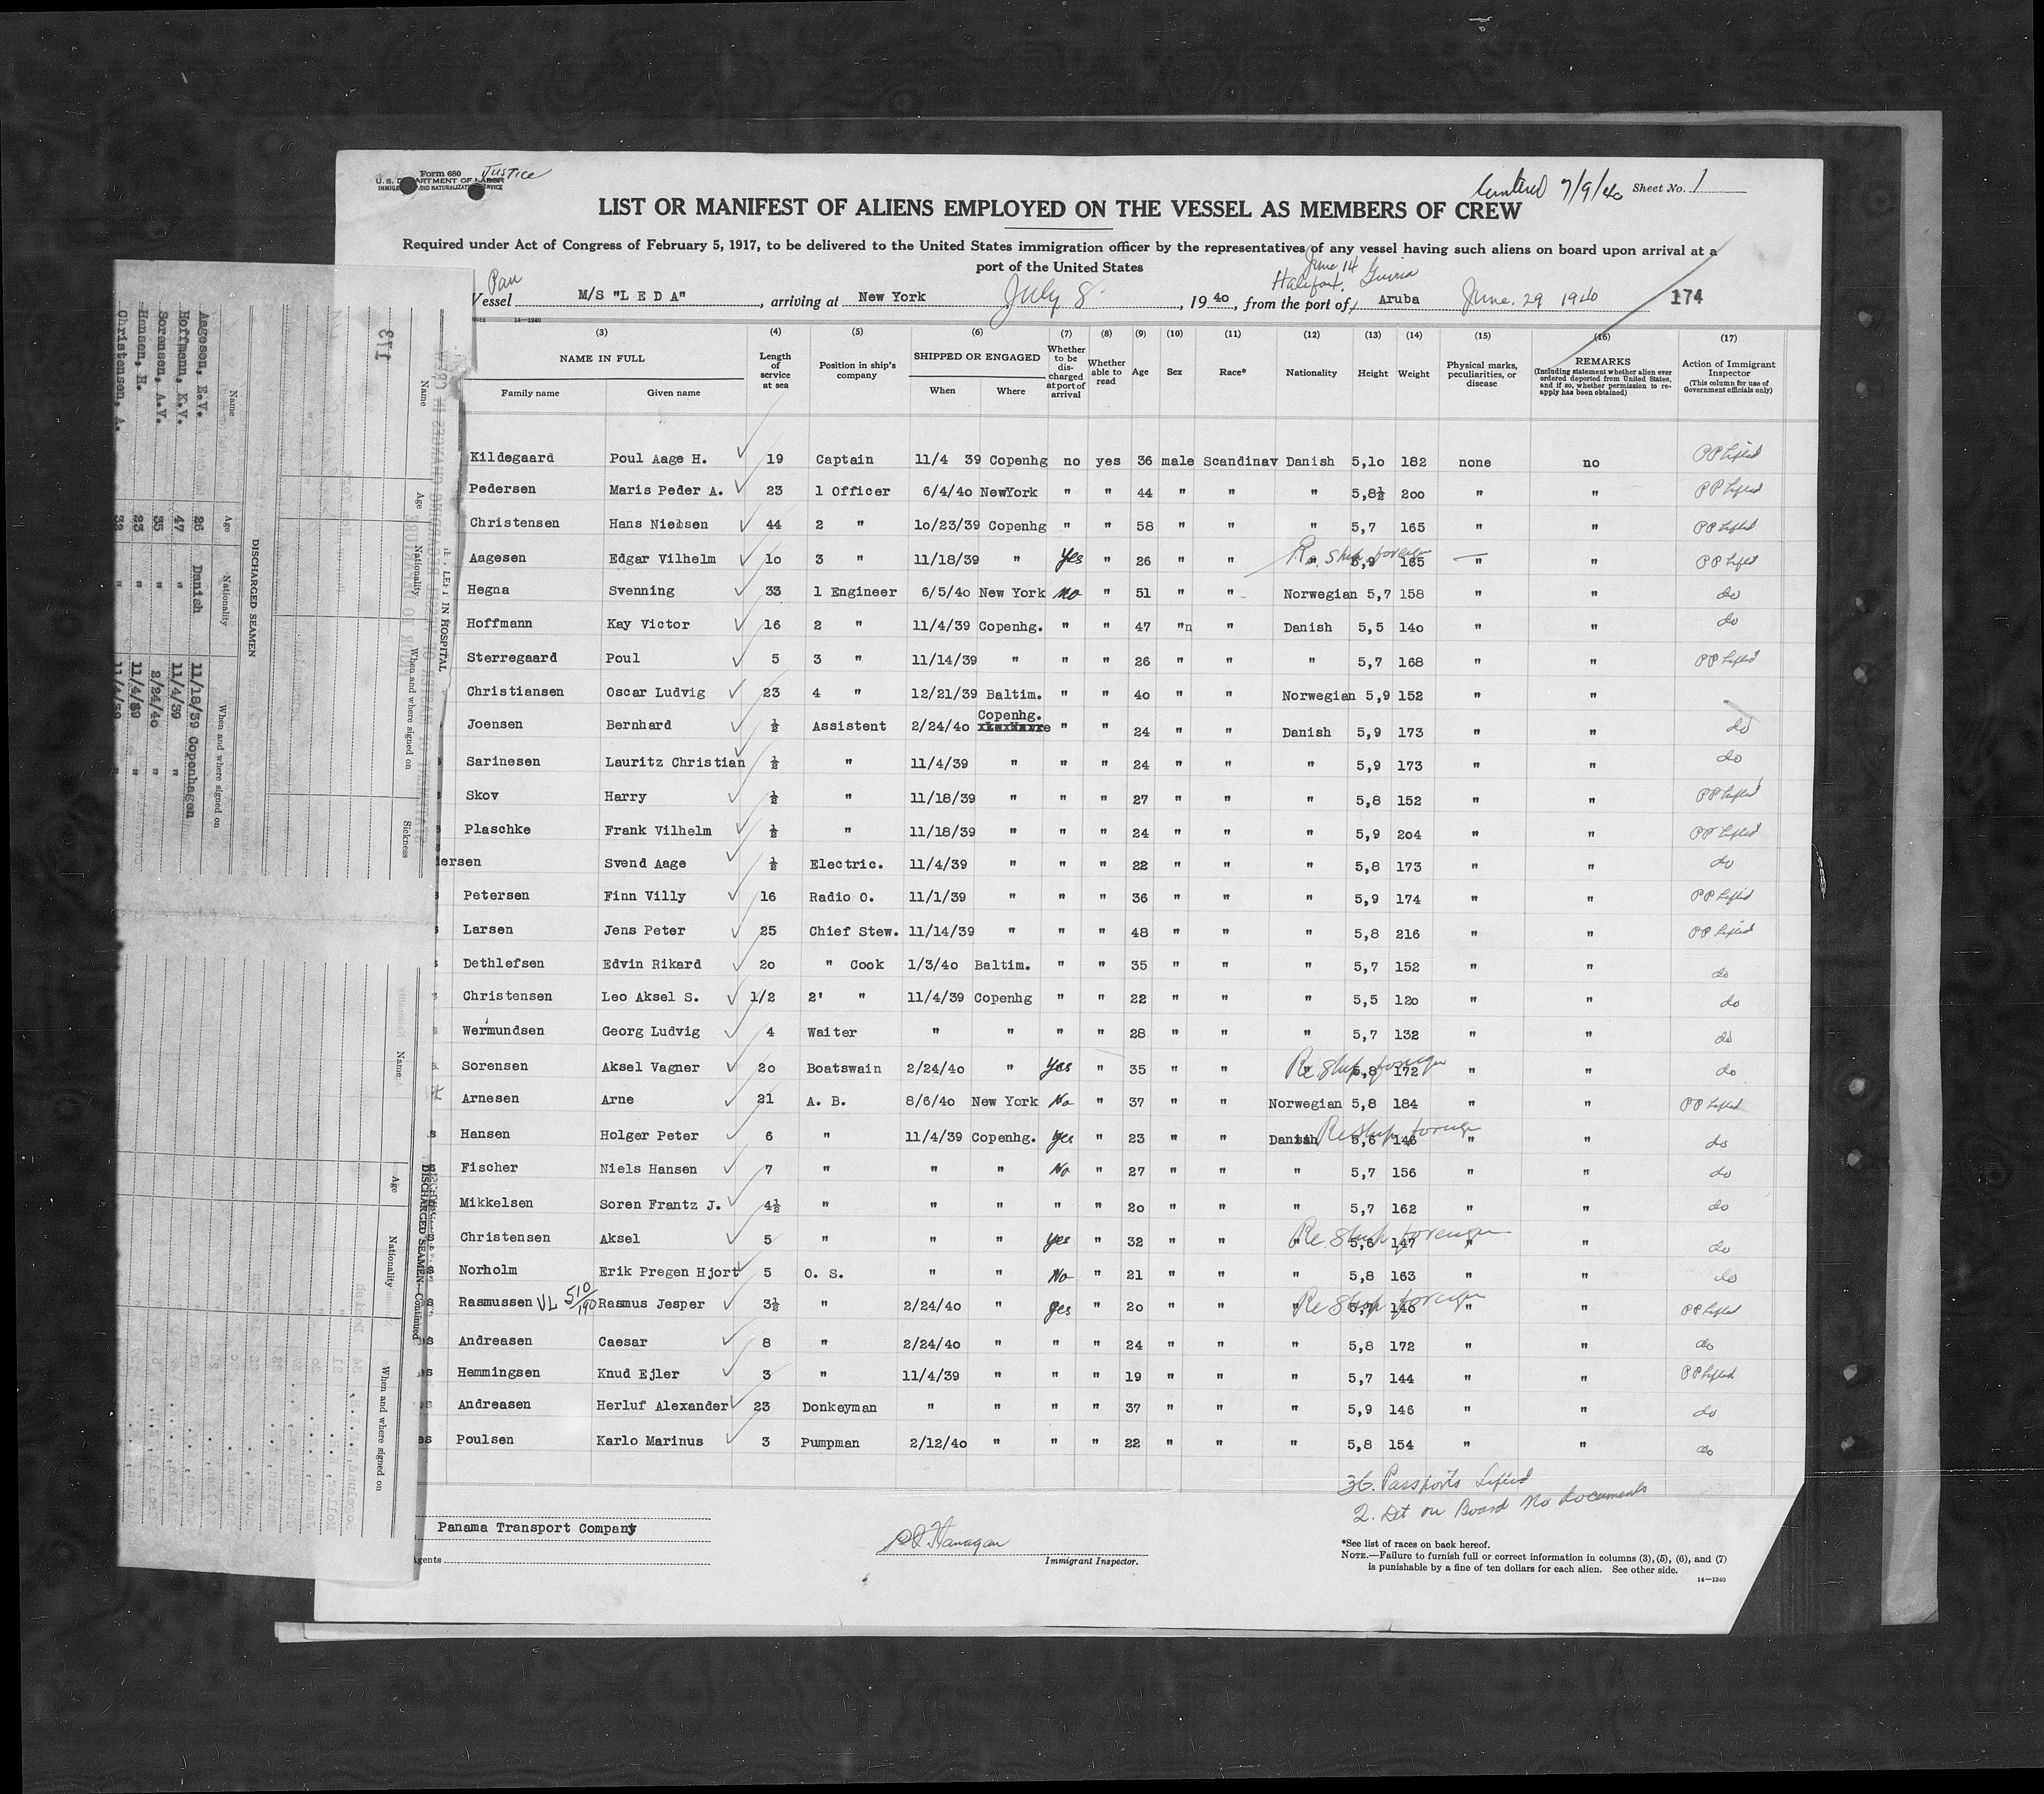 Form 680 Justice
U.S. DEPARTMENT OF LABOR
IMMIGRATION AND NATURALIZATION SERVICE
7/9/40 Sheet No. 1
LIST OR MANIFEST OF ALIENS EMPLOYED ON THE VESSEL AS MEMBERS OF CREW
Required under Act of Congress of February 5, 1917, to be delivered to the United States immigration officer by the representatives of any vessel having such aliens on board upon arrival at a
port of the United States
June 14
Pan Halifax, Guiria
Vessel M/S "L E D A", arriving at New York July 8, 1940, from the port of Aruba June. 29 1940 174
14—1240
(3) (4) (5) (6) (7) (8) (9) (10) (11) (12) (13) (14) (15) (16) (17)
NAME IN FULL Length of service at sea Position in ship's company SHIPPED OR ENGAGED Whether to be discharged at port of arrival Whether able to read Age Sex Race* Nationality Height Weight Physical marks, peculiarities, or disease REMARKS (Including statement whether alien ever ordered deported from United States, and if so, whether permission to re-apply has been obtained) Action of Immigrant Inspector (This column for use of Government officials only)
Family name Given name When Where
Kildegaard Poul Aage H. 19 Captain 11/4 39 Copenhg no yes 36 male Scandinav Danish 5,1o 182 none no PP Lifted
Pedersen Maris Peder A. 23 1 Officer 6/4/40 NewYork " " 44 " " " 5,8½ 200 " " PP Lifted
Christensen Hans Nielsen 44 2 " 1o/23/39 Copenhg " " 58 " " " 5,7 165 " " PP Lifted
Aagesen Edgar Vilhelm 1o 3 " 11/18/39 " Yes " 26 " " " Re. ship foreign 5,9 165 " " PP Lifted
Hegna Svenning 33 1 Engineer 6/5/4o New York No " 51 " " Norwegian 5,7 158 " " do
Hoffmann Kay Victor 16 2 " 11/4/39 Copenhg. " " 47 "n " Danish 5,5 14o " " do
Sterregaard Poul 5 3 " 11/14/39 " " " 26 " " " 5,7 168 " " PP Lifted
Christiansen Oscar Ludvig 23 4 " 12/21/39 Baltim. " " 4o " " Norwegian 5,9 152 " " "
Joensen Bernhard ½ Assistent 2/24/4o Copenhg. " " 24 " " Danish 5,9 173 " " do
Sarinesen Lauritz Christian ½ " 11/4/39 " " " 24 " " " 5,9 173 " " do
Skov Harry ½ " 11/18/39 " " " 27 " " " 5,8 152 " " PP Lifted
Plaschke Frank Vilhelm ½ " 11/18/39 " " " 24 " " " 5,9 2o4 " " PP Lifted
ersen Svend Aage ½ Electric. 11/4/39 " " " 22 " " " 5,8 173 " " do
Petersen Finn Villy 16 Radio O. 11/1/39 " " " 36 " " " 5,9 174 " " PP Lifted
Larsen Jens Peter 25 Chief Stew. 11/14/39 " " " 48 " " " 5,8 216 " " PP Lifted
Dethlefsen Edvin Rikard 2o " Cook 1/3/4o Baltim. " " 35 " " " 5,7 152 " " do
Christensen Leo Aksel S. 1/2 2' " 11/4/39 Copenhg " " 22 " " " 5,5 12o " " do
Wermundsen Georg Ludvig 4 Waiter " " " " 28 " " " 5,7 132 " " do
Sorensen Aksel Vagner 2o Boatswain 2/24/4o " Yes " 35 " " " Re. ship foreign 5,8 172 " " do
Arnesen Arne 21 A. B. 8/6/4o New York No " 37 " " Norwegian 5,8 184 " " PP Lifted
Hansen Holger Peter 6 " 11/4/39 Copenhg. Yes " 23 " " Danish Reship foreign 5,6 146 " " do
Fischer Niels Hansen 7 " " " No " 27 " " " 5,7 156 " " do
Mikkelsen Soren Frantz J. 4½ " " " " " 2o " " " 5,7 162 " " do
Christensen Aksel 5 " " " Yes " 32 " " " Re Ship foreign 5,6 147 " " do
Norholm Erik Pregen Hjort 5 O. S. " " No " 21 " " " 5,8 163 " " do
Rasmussen VL 510/190 Rasmus Jesper 3½ " 2/24/4o " Yes " 2o " " " Re Ship foreign 146 " " PP Lifted
Andreasen Caesar 8 " 2/24/4o " " " 24 " " " 5,8 172 " " do
Hemmingsen Knud Ejler 3 " 11/4/39 " " " 19 " " " 5,7 144 " " PP Lifted
Andreasen Herluf Alexander 23 Donkeyman " " " " 37 " " " 5,9 146 " " do
Poulsen Karlo Marinus 3 Pumpman 2/12/4o " " " 22 " " " 5,8 154 " " do
36. Passports Lifted
2. Det on Board No documents
Panama Transport Company
Agents
Flanagan
Immigrant Inspector.
*See list of races on back hereof.
NOTE.—Failure to furnish full or correct information in columns (3), (5), (6), and (7)
is punishable by a fine of ten dollars for each alien. See other side.
14—1240
173
Name Age Nationality When and where signed on Sickness
IN HOSPITAL
DISCHARGED SEAMEN
Name Age Nationality When and where signed on
Aagesen, E.V. 26 Danish 11/18/39 Copenhagen
Hoffmann, K.V. 47 " 11/4/39 "
Sorensen, A.V. 35 " 2/24/40 "
Hansen, H. 23 " 11/4/39 "
Christensen, A. 32 " 11/4/39 "
DISCHARGED SEAMEN—Continued
Name Age Nationality When and where signed on